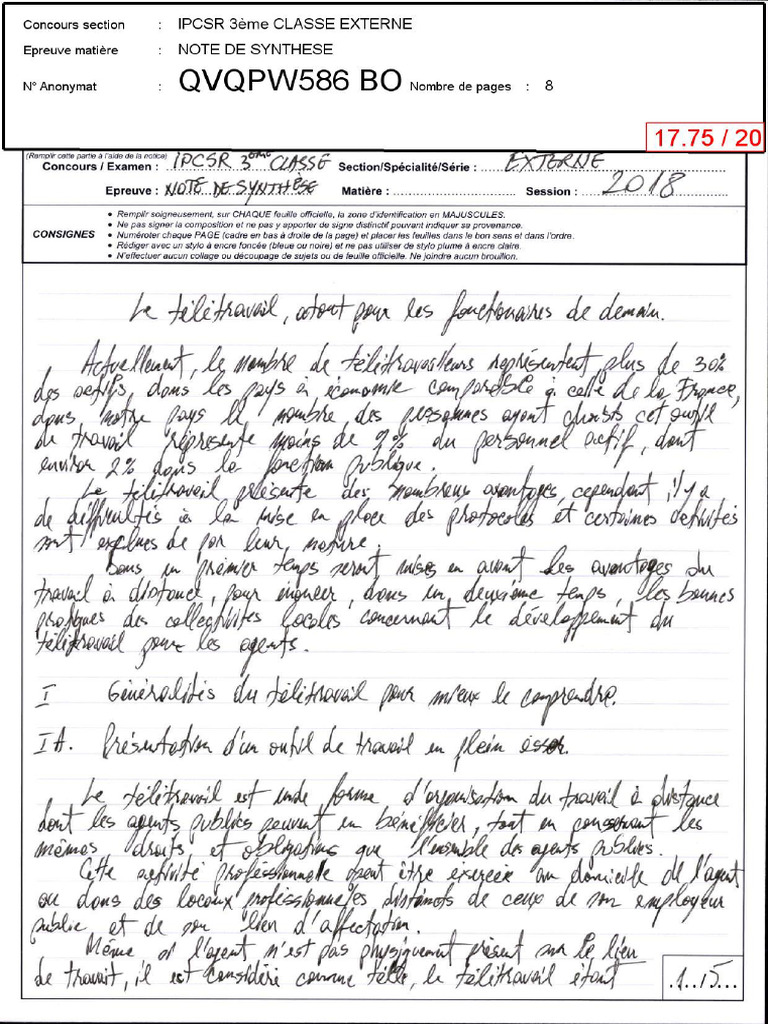 Concours section : IPCSR 3ème CLASSE EXTERNE
Epreuve matière : NOTE DE SYNTHESE
N° Anonymat : QVQPW586 BO Nombre de pages : 8
17.75 / 20
(Remplir cette partie à l'aide de la notice)
Concours / Examen : IPCSR 3ème CLASSE Section/Spécialité/Série : EXTERNE
Epreuve : NOTE DE SYNTHÈSE Matière : Session : 2018
CONSIGNES
• Remplir soigneusement, sur CHAQUE feuille officielle, la zone d'identification en MAJUSCULES.
• Ne pas signer la composition et ne pas y apporter de signe distinctif pouvant indiquer sa provenance.
• Numéroter chaque PAGE (cadre en bas à droite de la page) et placer les feuilles dans le bon sens et dans l'ordre.
• Rédiger avec un stylo à encre foncée (bleue ou noire) et ne pas utiliser de stylo plume à encre claire.
• N'effectuer aucun collage ou découpage de sujets ou de feuille officielle. Ne joindre aucun brouillon.
Le télétravail, atout pour les fonctionaires de demain.
Actuellement, le nombre de télétravailleurs représentent plus de 30%
des actifs, dans les pays à économie comparable à celle de la France,
dans notre pays le nombre des personnes ayant choisis cet outil
de travail représente moins de 9% du personnel actif, dont
environ 2% dans la fonction publique.
Le télétravail présente des nombreux avantages, cependant, il y a
de difficultés à la mise en place des protocoles et certaines activités
sont exclues de par leur nature.
Dans un prémier temps seront mises en avant les avantages du
travail à distance, pour , dans un deuxième temps, les bonnes
pratiques des collectivités locales concernant le développement du
télétravail pour les agents.
I Généralités du télétravail pour mieux le comprendre.
IA. Présentation d'un outil de travail en plein essor.
Le télétravail est une forme d'organisation du travail à distance
dont les agents publics peuvent en bénéficier, tout en conservant les
mêmes droits et obligations que l'ensemble des agents publics.
Cette activité professionnelle peut être exercée au domicile de l'agent
ou dans des locaux professionnels distincts de ceux de son employeur
public, et de son lien d'affectation.
Même si l'agent n'est pas physiquement présent sur le lieu
de travail, il est considéré comme telle, le télétravail étant
.1../5...